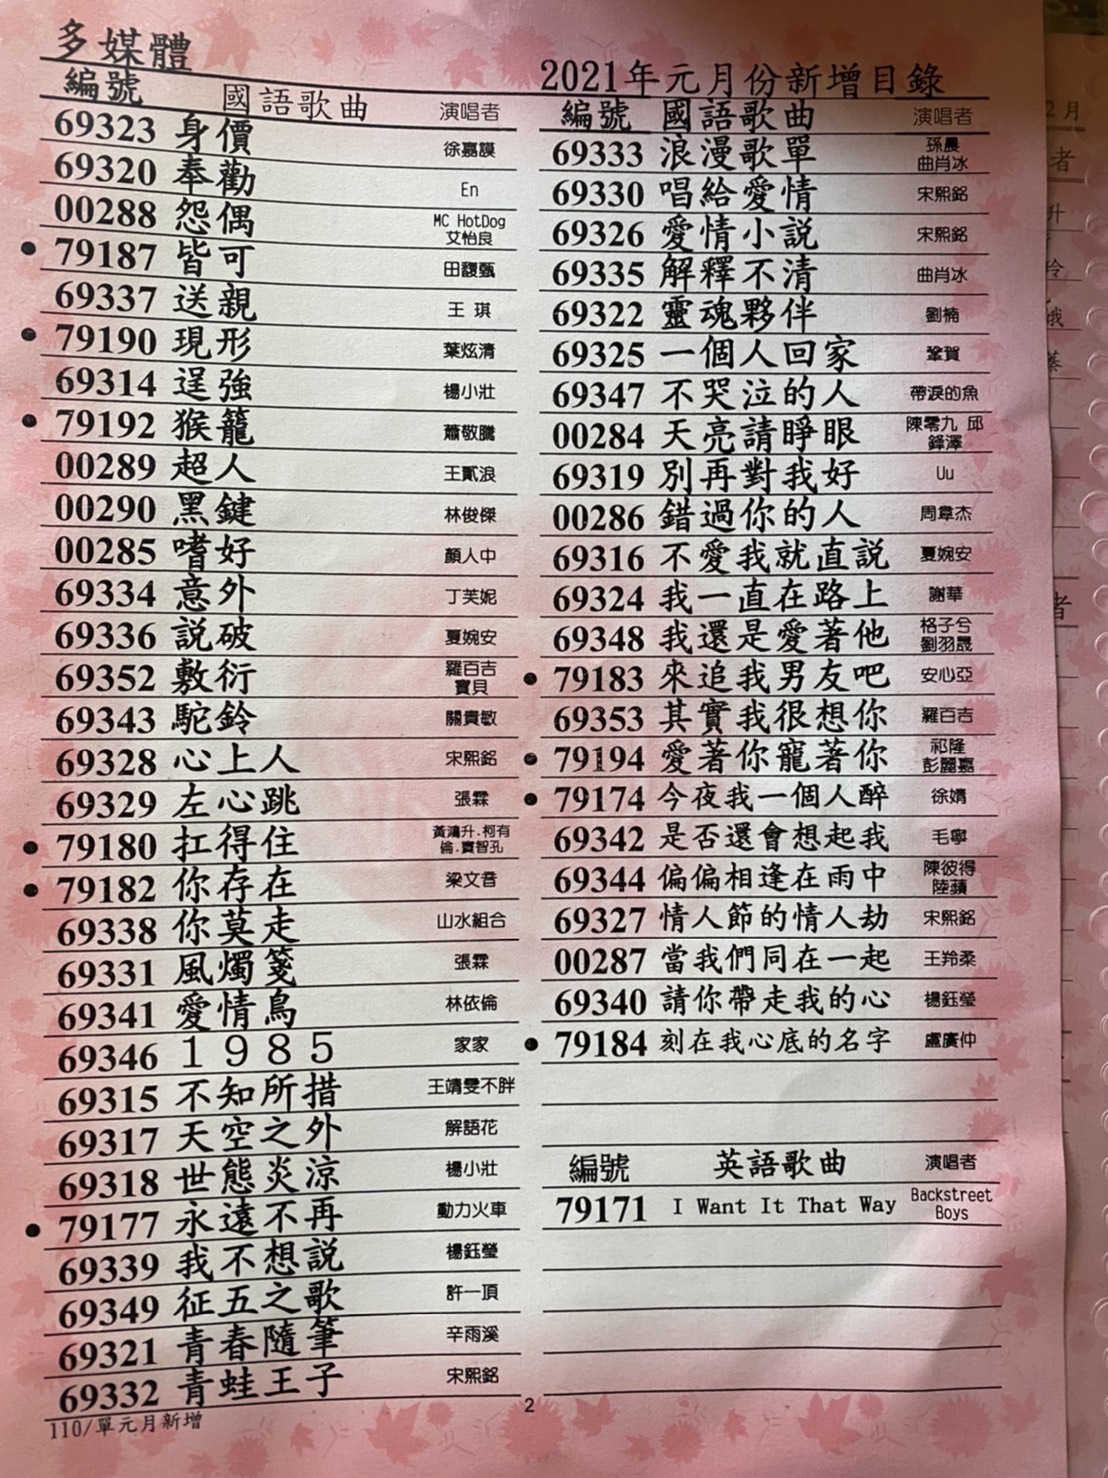 多媒體
2021年元月份新增目錄
編號 國語歌曲 演唱者
69323 身價 徐嘉謨
69320 奉勸 En
00288 怨偶 MC HotDog 艾怡良
● 79187 皆可 田馥甄
69337 送親 王琪
● 79190 現形 葉炫清
69314 逞強 楊小壯
● 79192 猴籠 蕭敬騰
00289 超人 王貳浪
00290 黑鍵 林俊傑
00285 嗜好 顏人中
69334 意外 丁芙妮
69336 説破 夏婉安
69352 敷衍 羅百吉 寶貝
69343 駝鈴 關貴敏
69328 心上人 宋熙銘
69329 左心跳 張霖
● 79180 扛得住 黃鴻升.柯有倫.竇智孔
● 79182 你存在 梁文音
69338 你莫走 山水組合
69331 風燭箋 張霖
69341 愛情鳥 林依倫
69346 １９８５ 家家
69315 不知所措 王靖雯不胖
69317 天空之外 解語花
69318 世態炎涼 楊小壯
● 79177 永遠不再 動力火車
69339 我不想説 楊鈺瑩
69349 征五之歌 許一頂
69321 青春隨筆 辛雨溪
69332 青蛙王子 宋熙銘
110/單元月新增
編號 國語歌曲 演唱者
69333 浪漫歌單 孫晨 曲肖冰
69330 唱給愛情 宋熙銘
69326 愛情小説 宋熙銘
69335 解釋不清 曲肖冰
69322 靈魂夥伴 劉楠
69325 一個人回家 鞏賀
69347 不哭泣的人 帶淚的魚
00284 天亮請睜眼 陳零九 邱鋒澤
69319 別再對我好 Uu
00286 錯過你的人 周韋杰
69316 不愛我就直説 夏婉安
69324 我一直在路上 謝華
69348 我還是愛著他 格子兮 劉羽晟
● 79183 來追我男友吧 安心亞
69353 其實我很想你 羅百吉
● 79194 愛著你寵著你 祁隆 彭麗嘉
● 79174 今夜我一個人醉 徐婧
69342 是否還會想起我 毛寧
69344 偏偏相逢在雨中 陳彼得 陸蘋
69327 情人節的情人劫 宋熙銘
00287 當我們同在一起 王羚柔
69340 請你帶走我的心 楊鈺瑩
● 79184 刻在我心底的名字 盧廣仲
編號 英語歌曲 演唱者
79171 I Want It That Way Backstreet Boys
2
2月
者
升
者